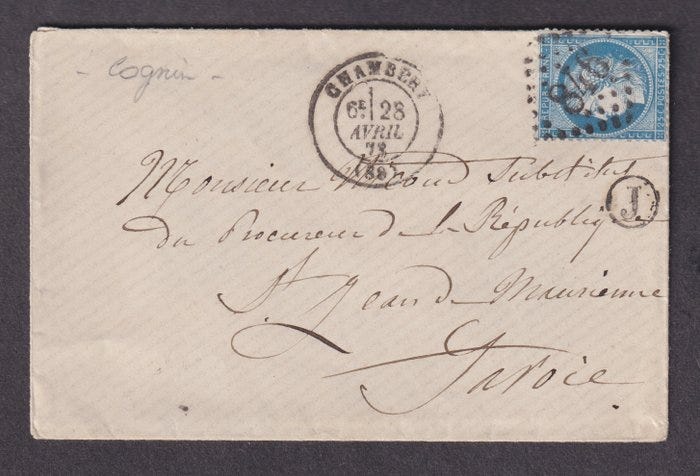 - Cognin -
CHAMBERY
6E 28
AVRIL
73
(88)
REPUB FRANC
25 C POSTES 25 C
Monsieur Substitut
du Procureur de la République
J
St Jean de Maurienne
Savoie